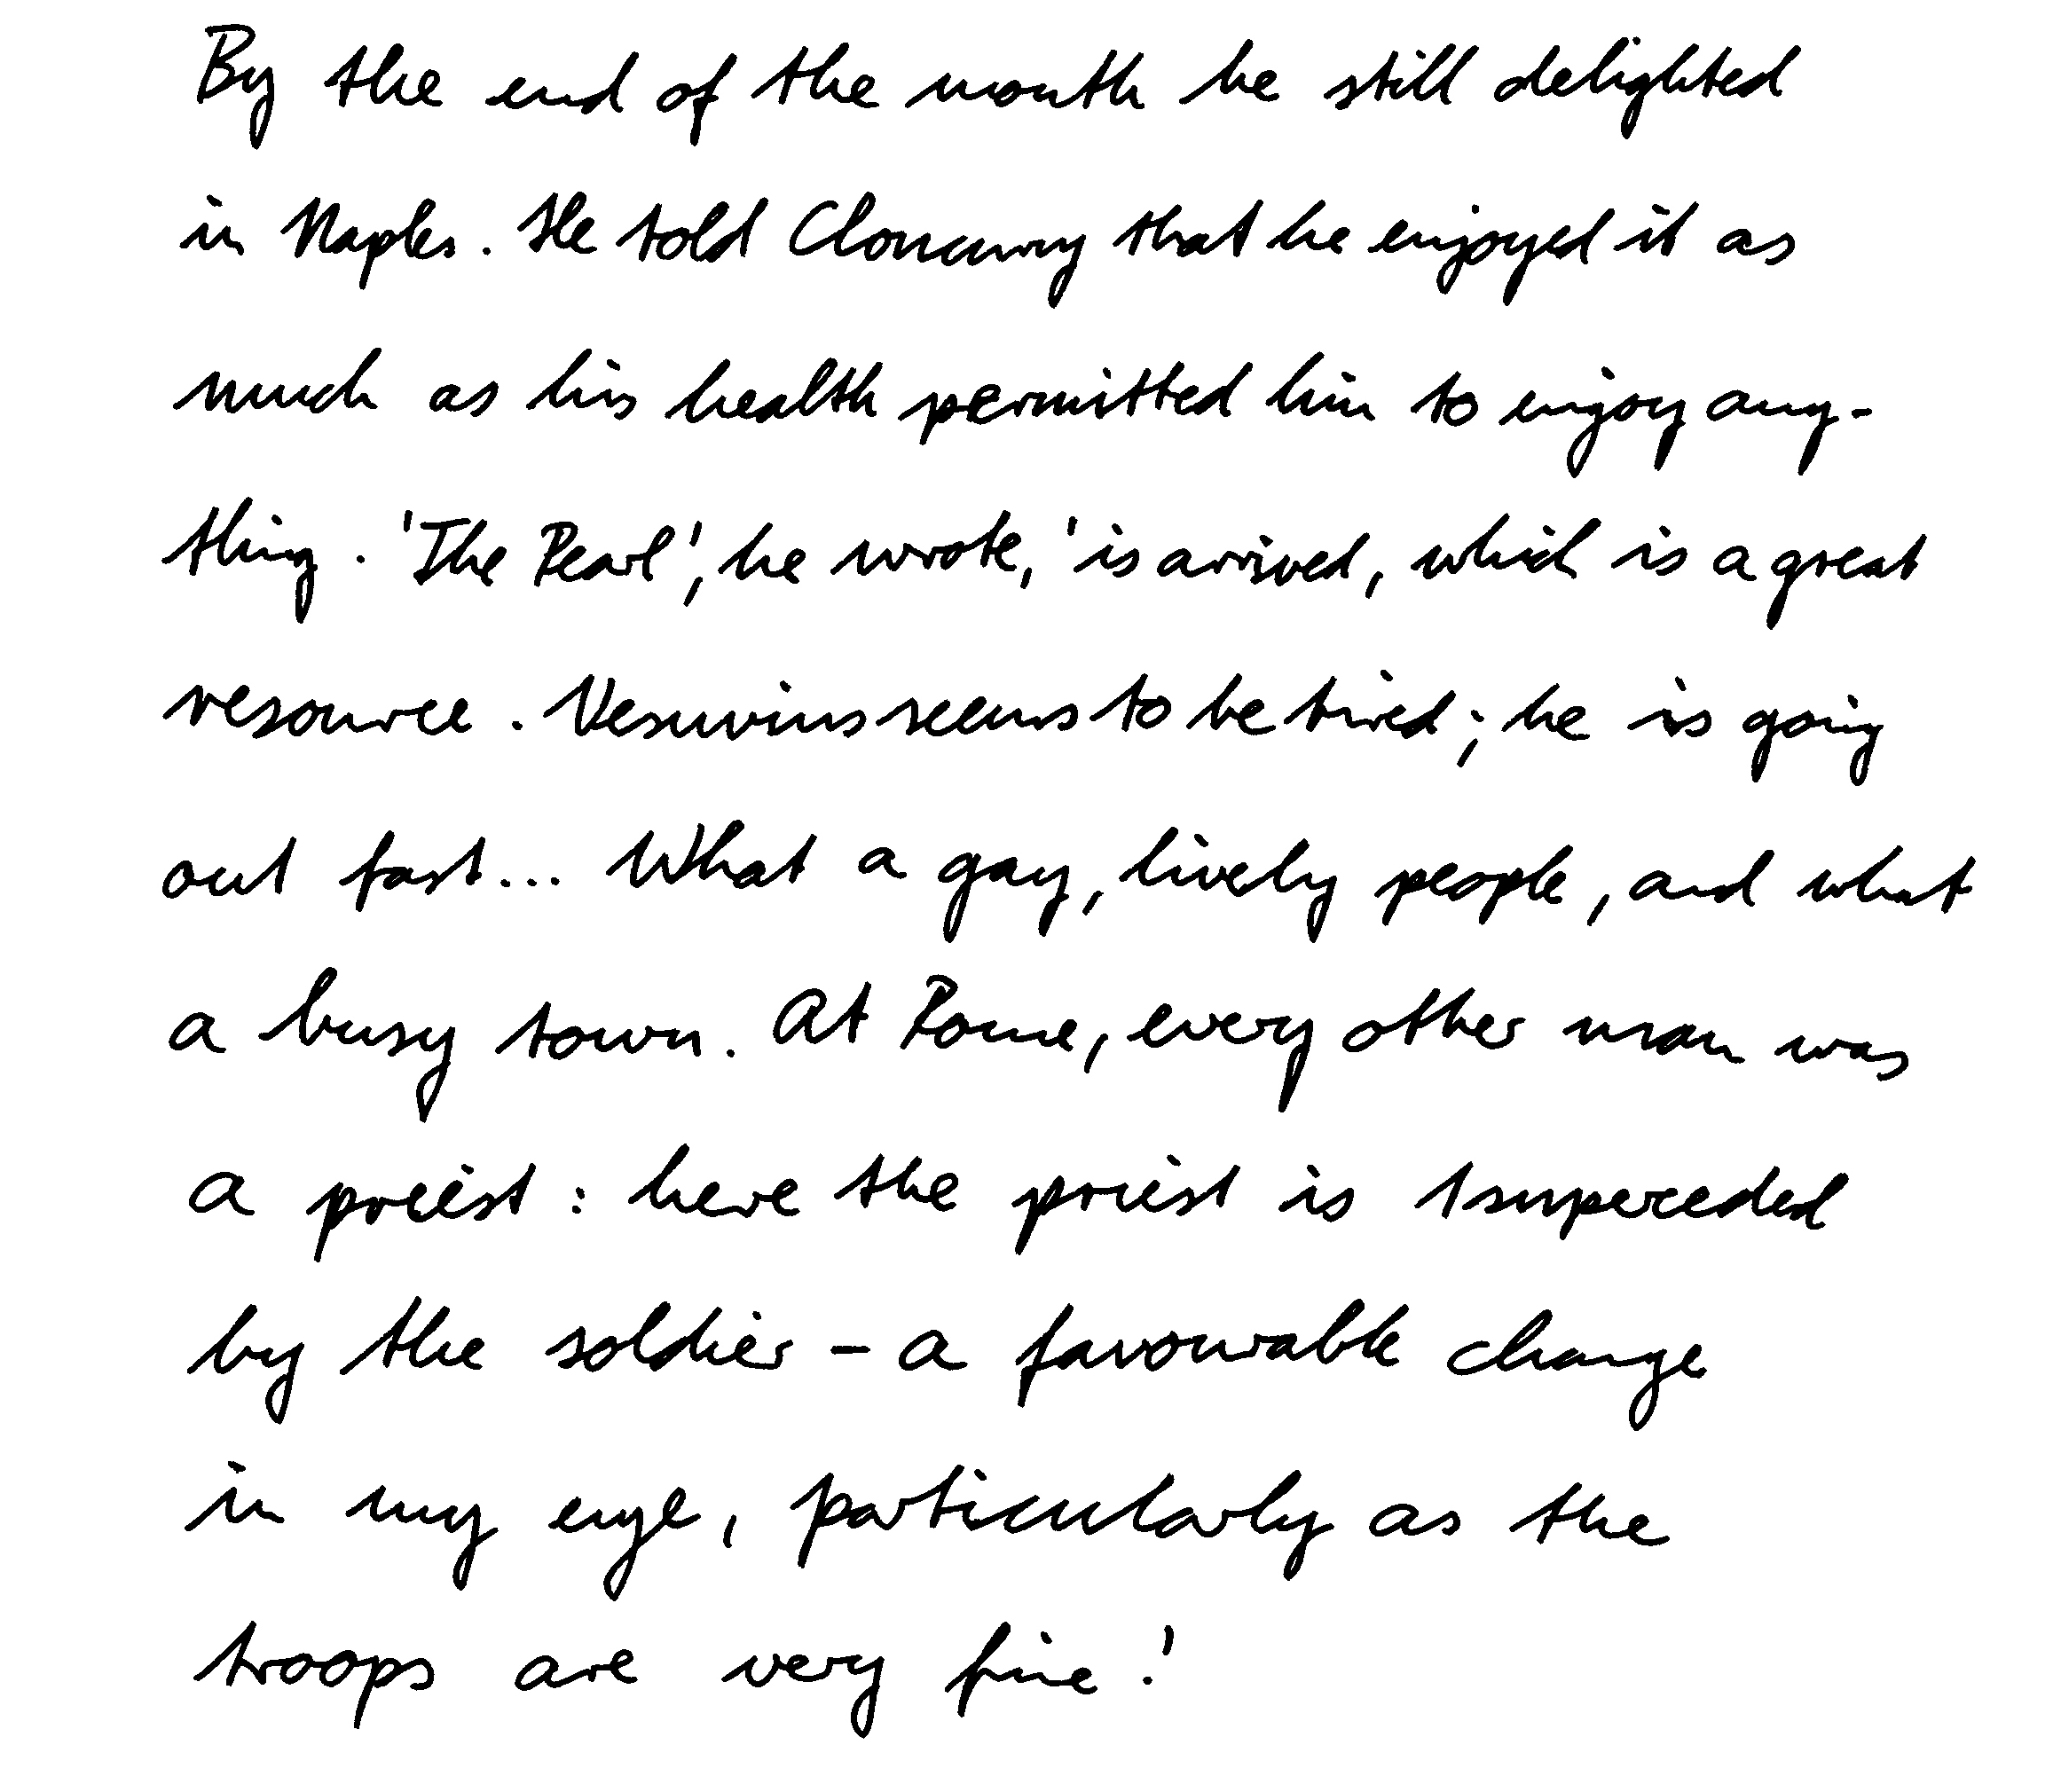 By the end of the month he still delighted
in Naples. He told Cloncurry that he enjoyed it as
much as his health permitted him to enjoy any-
thing. 'The Pearl', he wrote, 'is arrived, which is a great
resource. Vesuvius seems to be tired; he is going
out fast... What a gay, lively people, and what
a busy town. At Rome, every other man was
a priest: here the priest is superceded
by the soldier - a favourable change
in my eye, particularly as the
troops are very fine.'